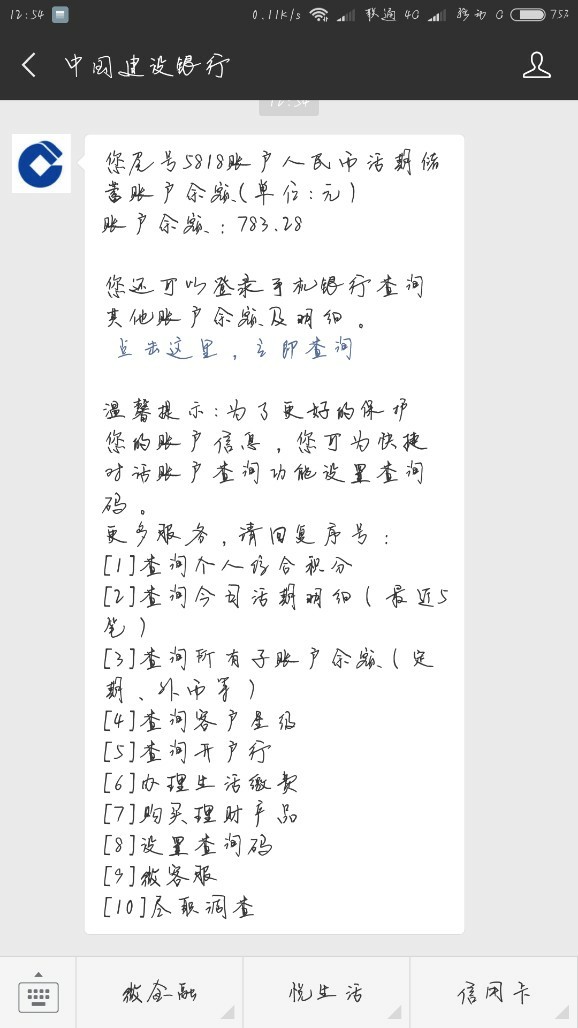 12:54 0.11K/s 联通 4G 移动 G 75%
中国建设银行
12:54
您尾号5818账户人民币活期储
蓄账户余额(单位:元)
账户余额:783.28
您还可以登录手机银行查询
其他账户余额及明细。
点击这里,立即查询
温馨提示:为了更好的保护
您的账户信息,您可为快捷
对话账户查询功能设置查询
码。
更多服务,请回复序号:
[1]查询个人综合积分
[2]查询今日活期明细(最近5
笔)
[3]查询所有子账户余额(定
期、外币等)
[4]查询客户星级
[5]查询开户行
[6]办理生活缴费
[7]购买理财产品
[8]设置查询码
[9]微客服
[10]尽职调查
微金融 悦生活 信用卡